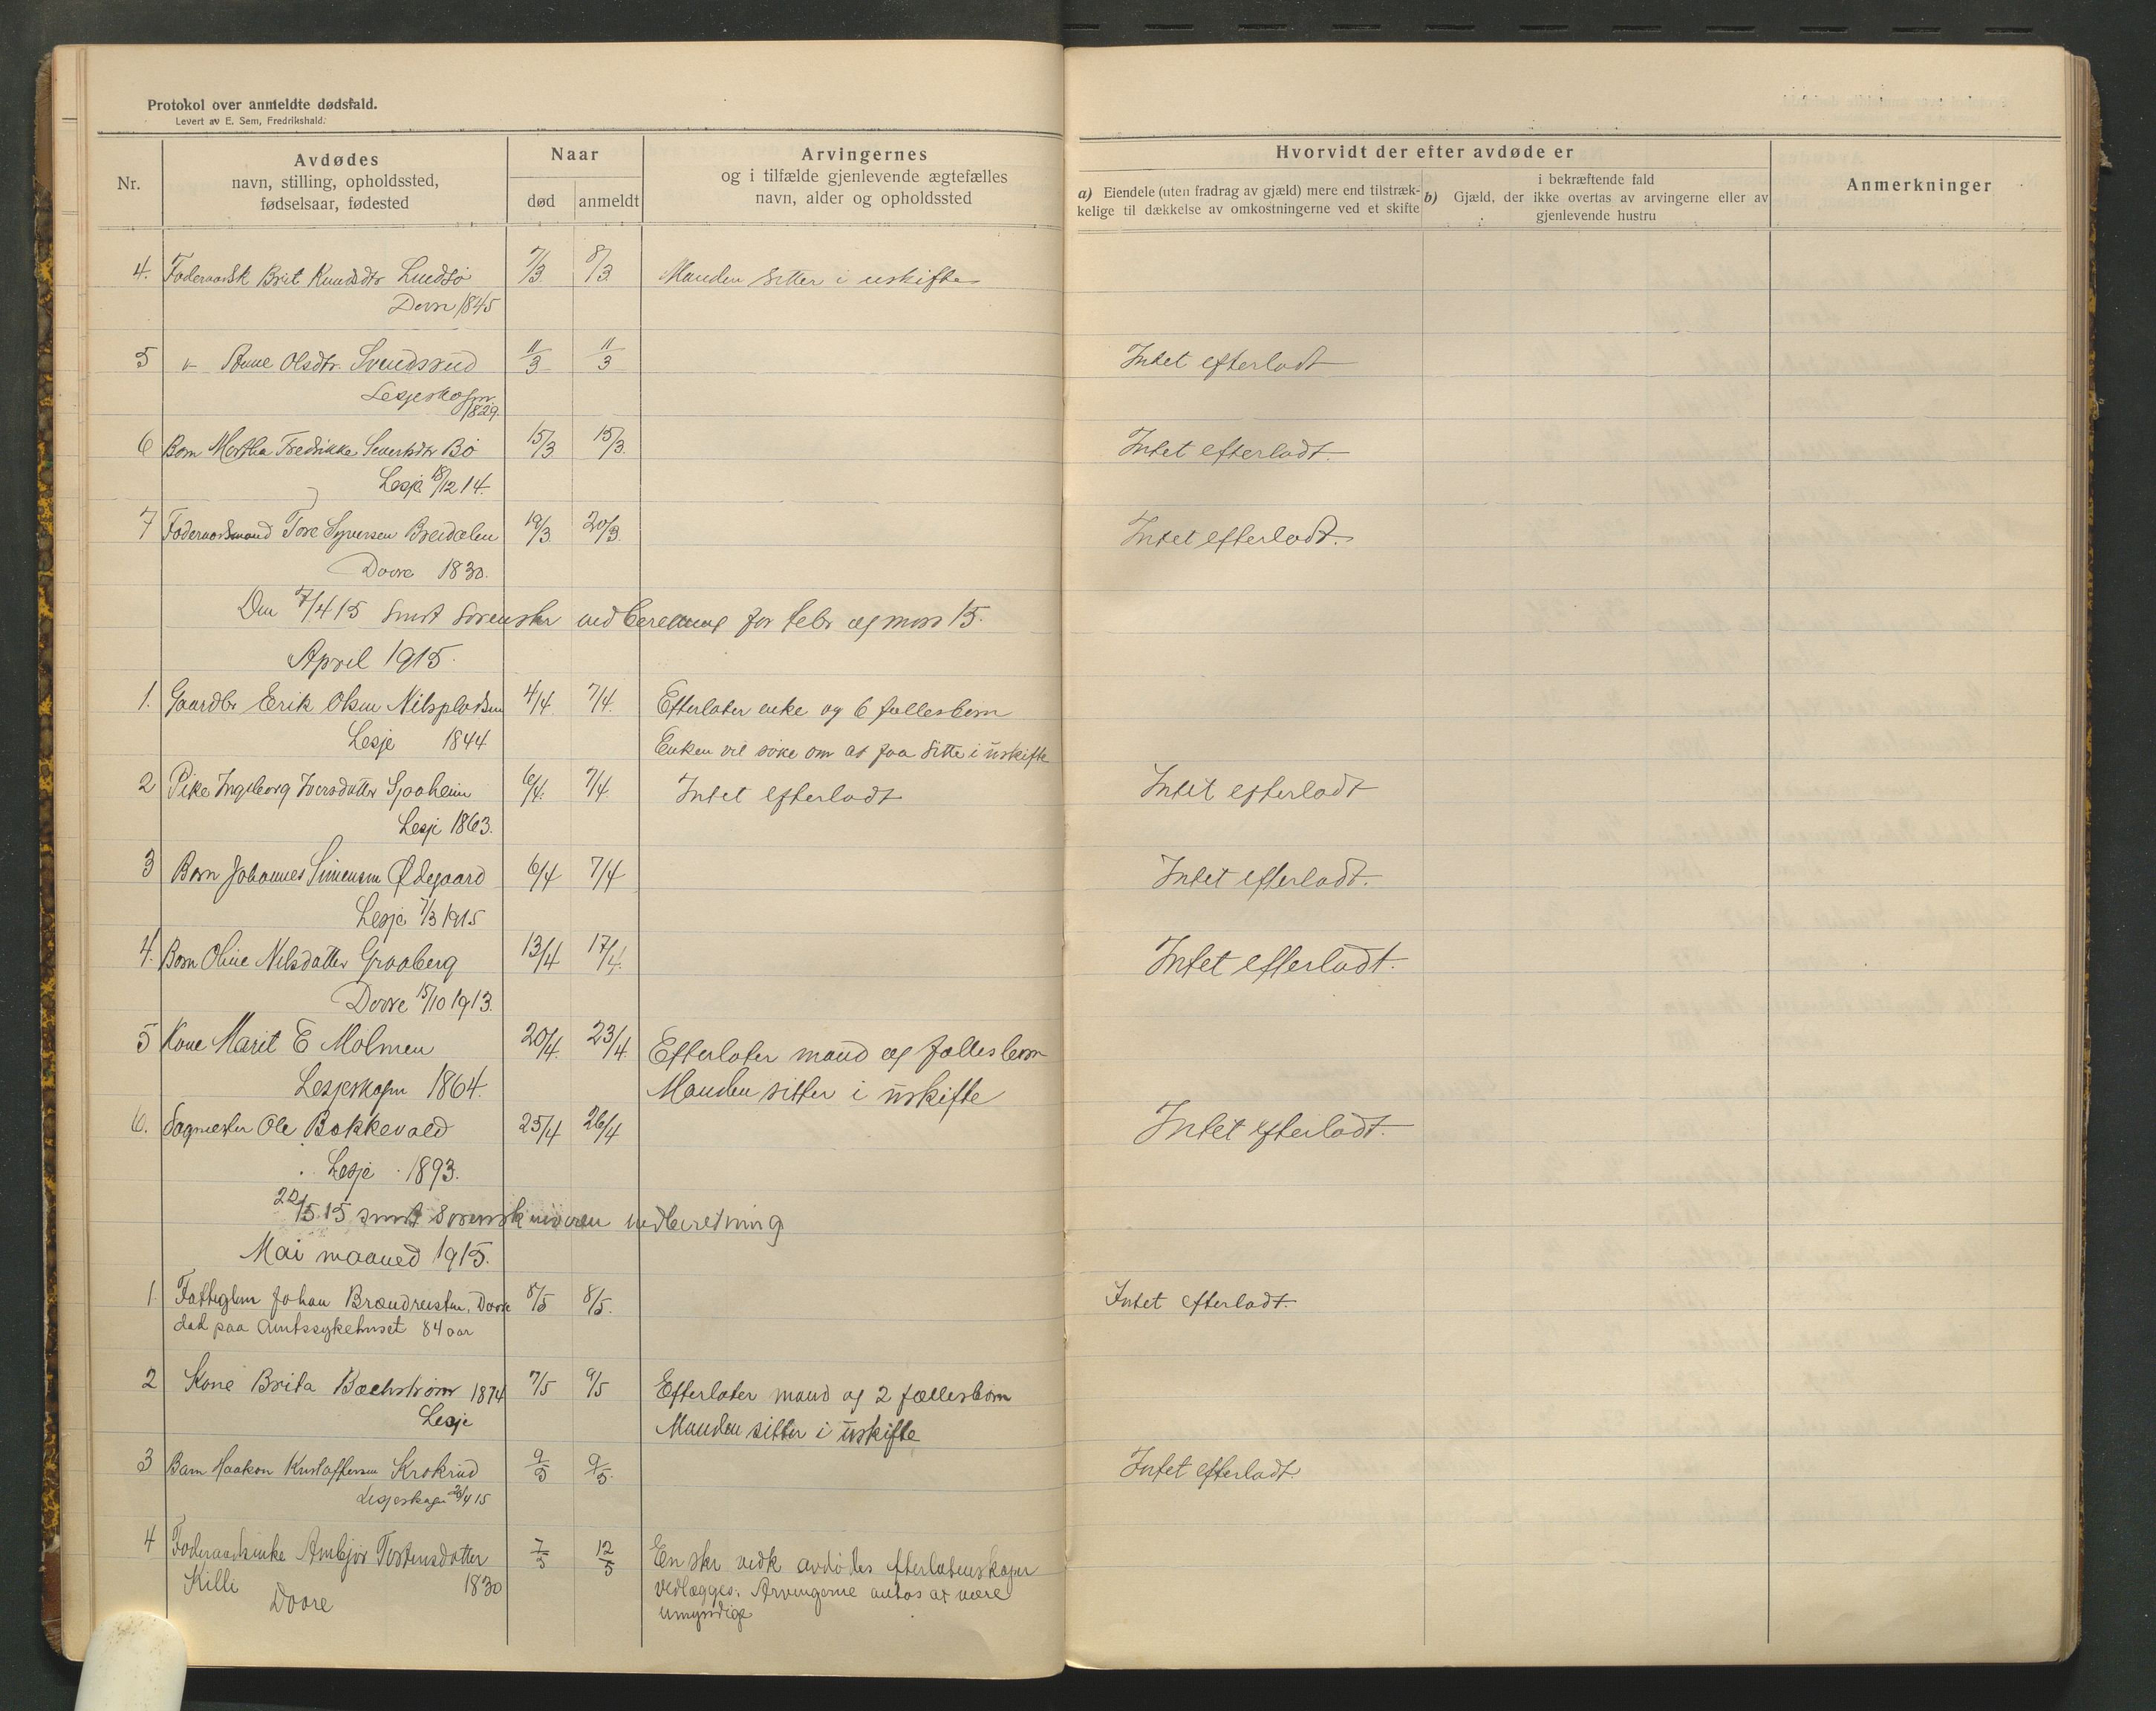 Protokol over anmeldte dødsfald.
Levert av E. Sem, Fredrikshald.
Nr.
Avdødes
navn, stilling, opholdssted,
fødselsaar, fødested
Naar
død
anmeldt
Arvingernes
og i tilfælde gjenlevende ægtefælles
navn, alder og opholdssted
Hvorvidt der efter avdøde er
a) Eiendele (uten fradrag av gjæld) mere end tilstræk-
kelige til dækkelse av omkostningerne ved et skifte
i bekræftende fald
b) Gjæld, der ikke overtas av arvingerne eller av
gjenlevende hustru
Anmerkninger
4. Foderaadsk Brit Knudsdtr 7/3 8/3 Manden sitter i uskifte
Dovre 1845
5 Anne Olsdtr. Svendsrud 11/3 11/3 Intet efterladt
Lesjeskogn.
1829.
6 Barn Martha Fredrikke Bø 15/3 15/3 Intet efterladt.
Lesje 18/12 14.
7 Foderaadsmand Tore Syversen Breidalen 19/3 20/3 Intet efterladt.
Dovre 1830.
Den 7/4 15 sendt sorenskr indberetning for febr og mars 15.
April 1915.
1. Gaardbr Erik Olsen Nilspladsen 4/4 7/4 Efterlater enke og 6 fællesbørn
Lesje 1844 Enken vil søke om at faa sitte i uskifte
2 Pike Ingeborg Iversdatter Sjaaheim 6/4. 7/4 Intet efterladt Intet efterladt
Lesje 1863.
3 Barn Johannes Simensen Ødegaard 6/4 7/4 Intet efterladt.
Lesje 7/3 1915
4. Barn Oline Nilsdatter Graaberg 13/4 17/4. Intet efterladt.
Dovre 15/10 1913.
5 Kone Marit E Mølmen 20/4 23/4 Efterlater mand og fællesbørn
Lesjeskogn 1864. Manden sitter i uskifte
6. Ole Bakkevold 25/4 26/4 Intet efterladt.
Lesje 1893.
22/5 15 sendt sorenskriveren indberetning
Mai maaned 1915.
1. Fattiglem Johan Brændreisten, Dovre 8/5 8/5. Intet efterladt.
død paa Amtssykehuset 84 aar
2 Kone Brita Bachstrøm 1874 7/5 9/5 Efterlater mand og 2 fællesbørn
Lesje Manden sitter i uskifte
3 Barn Haakon Kristoffersen Krokrud 9/5 9/5. Intet efterladt.
Lesjeskogn 26/4 15
4 Foderaadsenke Ambjør Tostensdatter 7/5 12/5 En skr vedk avdødes efterlatenskaper
Killi 1830 vedlægges. Arvingerne antas at være
Dovre umyndige